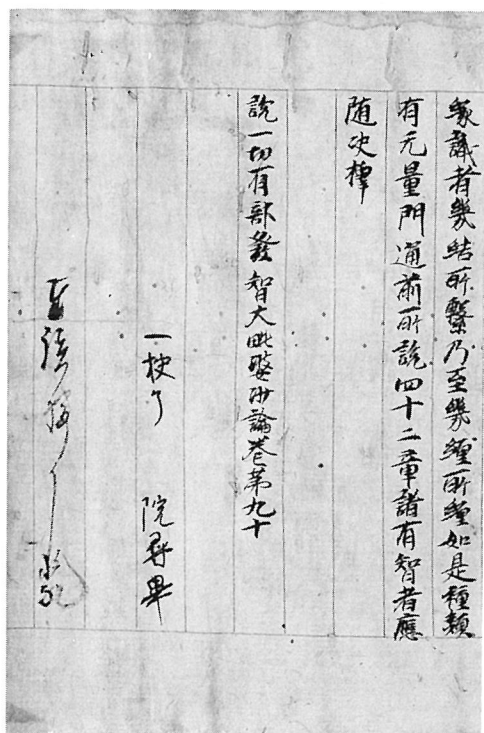 象識者幾結所繫乃至幾纏所纏如是種類
有无量門通前所說四十二章諸有智者應
随决擇
說一切有部發智大毗婆沙論卷第九十
一校了 院尋畢